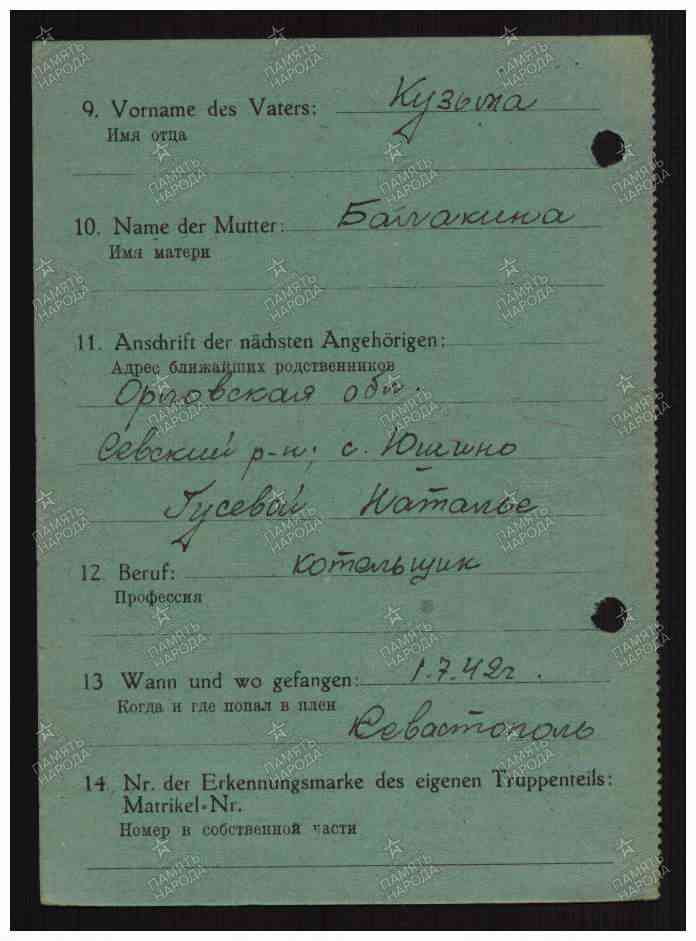 9. Vorname des Vaters: Кузьма
Имя отца
10. Name der Mutter: Балакина
Имя матери
11. Anschrift der nächsten Angehörigen:
Адрес ближайших родственников
Орловская обл.
Севский р-н; с. Юшино
Гусевой Наталье
12. Beruf: котельщик
Профессия
13 Wann und wo gefangen: 1.7.42г.
Когда и где попал в плен
Севастополь
14. Nr. der Erkennungsmarke des eigenen Truppenteils:
Matrikel-Nr.
Номер в собственной части
ПАМЯТЬ
НАРОДА